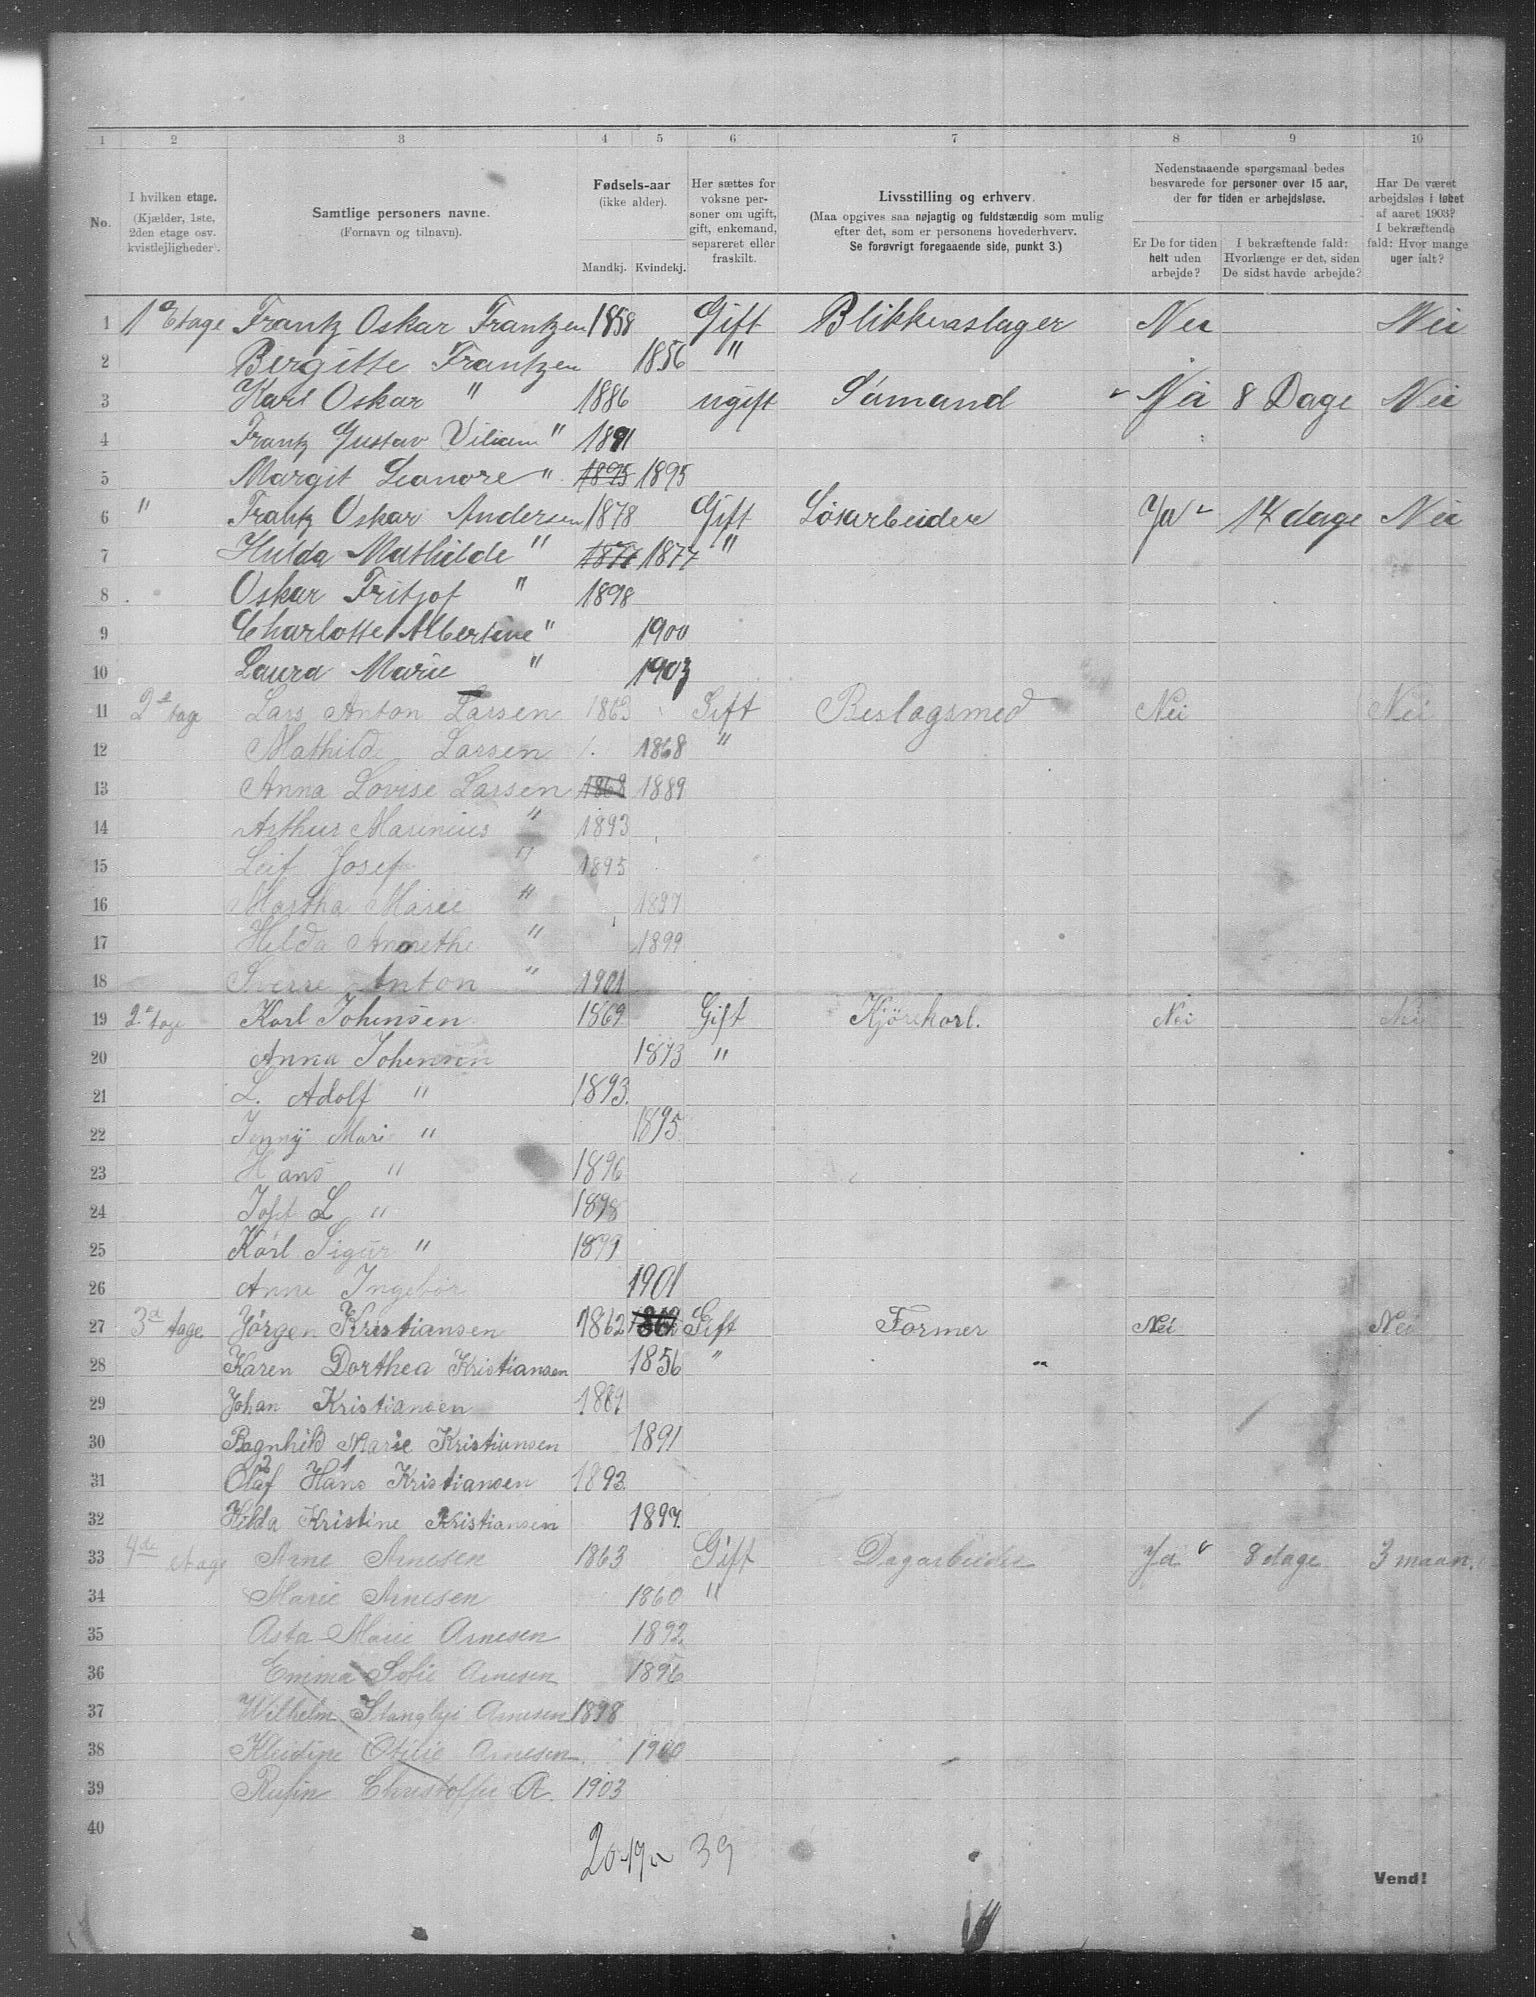 1 2 3 4 5 6 7 8 9 10
No.
I hvilken etage. (Kjælder, 1ste, 2den etage osv. kvistlejligheder).
Samtlige personers navne. (Fornavn og tilnavn).
Fødsels-aar (ikke alder). Mandkj. Kvindekj.
Her sættes for voksne personer om ugift, gift, enkemand, separeret eller fraskilt.
Livsstilling og erhverv. (Maa opgives saa nøjagtig og fuldstændig som mulig efter det, som er personens hovederhverv. Se forøvrigt foregaaende side, punkt 3.)
Nedenstaaende spørgsmaal bedes besvarede for personer over 15 aar, der for tiden er arbejdsløse.
Er De for tiden helt uden arbejde?
I bekræftende fald: Hvorlænge er det, siden De sidst havde arbejde?
Har De været arbejdsløs i løbet af aaret 1903? I bekræftende fald: Hvor mange uger ialt?
1 1 Etage Frantz Oskar Frantzen 1858 Gift Blikkenslager Nei Nei
2 Bergitte Frantzen 1856 "
3 Karl Oskar " 1886 ugift Sømand Nei 8 Dage Nei
4 Frantz Gustav Viliam " 1891
5 Margit Leonore " 1895 1895
6 " Frantz Oskar Andersen 1878 Gift Løsarbeider Ja 14 dage Nei
7 Hulda Mathilde " 1877 1877 "
8 Oskar Fritjof " 1898
9 Charlotte Albertine " 1900
10 Laura Marie " 1903
11 2 tage Lars Anton Larsen 1863 Gift Beslagsmed Nei Nei
12 Mathilde Larsen 1868 "
13 Anna Lovise Larsen 1868 1889
14 Arthur Marinius " 1893
15 Leif Josef " 1895
16 Martha Marie " 1897
17 Hilda Annethe " 1899
18 Sverre Anton " 1901
19 2 tage Karl Johensen 1869 Gift Kjørekarl. Nei Nei
20 Anna Johensen 1873 "
21 L. Adolf " 1893.
22 Jenny Mari " 1895.
23 Hans " 1896
24 Josef L " 1898
25 Karl Sigur " 1899
26 Anne Ingebor 1901
27 3d tage Jørgen Kristiansen 1862 1862 Gift Former Nei Nei
28 Karen Dorthea Kristiansen 1856 "
29 Johan Kristiansen 1889
30 Ragnhild Marie Kristiansen 1891
31 Olaf Hans Kristiansen 1893
32 Hilda Kristine Kristiansen 1897.
33 4de etage Arne Arnesen 1863 Gift Dagarbeider Ja 8 dage 3 maan.
34 Marie Arnesen 1860 "
35 Asta Marie Arnesen 1892
36 Emma Sofie Arnesen 1896
37 Wilhelm Arnesen 1898
38 Otilie Arnesen 1900
39 Christoffer A. 1903
40
20-19 39
Vend!